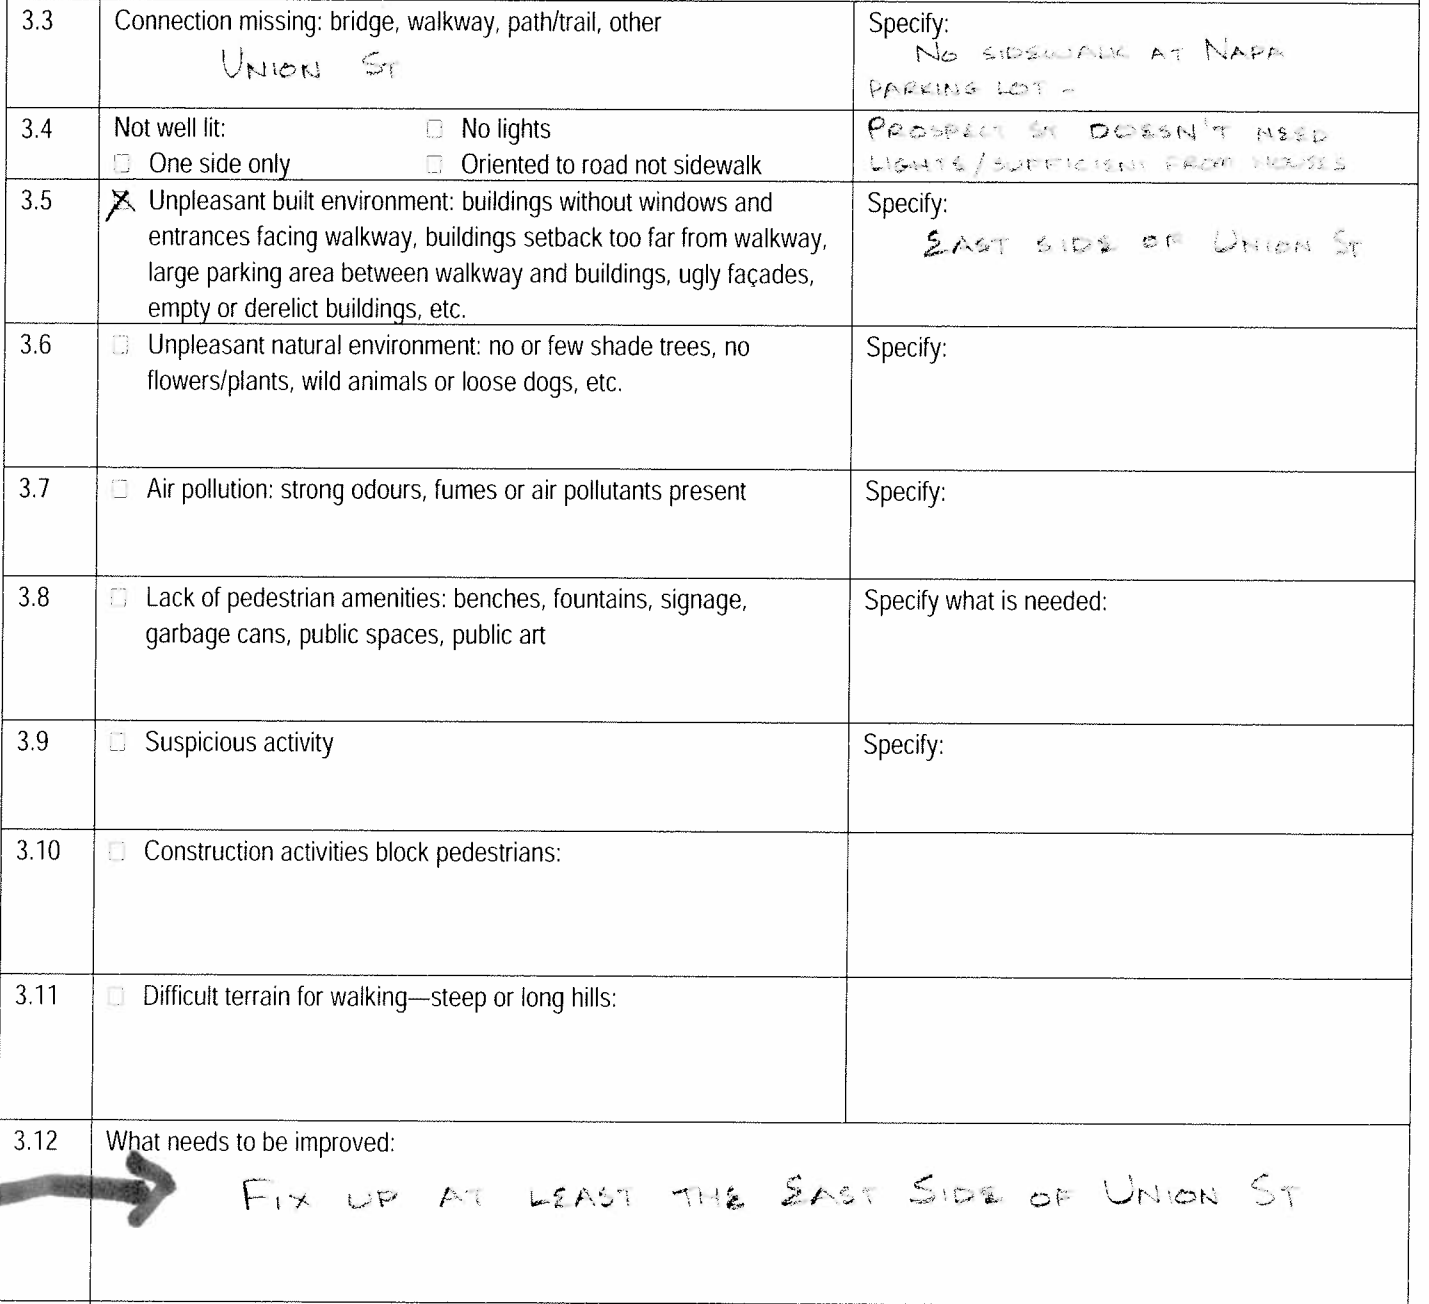 3.3 Connection missing: bridge, walkway, path/trail, other Specify:
UNION ST NO SIDEWALK AT NAPA
PARKING LOT -
3.4 Not well lit: ☐ No lights PROSPECT ST DOESN'T NEED
☐ One side only ☐ Oriented to road not sidewalk LIGHTS/SUFFICIENT FROM HOUSES
3.5 ☒ Unpleasant built environment: buildings without windows and Specify:
entrances facing walkway, buildings setback too far from walkway, EAST SIDE OF UNION ST
large parking area between walkway and buildings, ugly façades,
empty or derelict buildings, etc.
3.6 ☐ Unpleasant natural environment: no or few shade trees, no Specify:
flowers/plants, wild animals or loose dogs, etc.
3.7 ☐ Air pollution: strong odours, fumes or air pollutants present Specify:
3.8 ☐ Lack of pedestrian amenities: benches, fountains, signage, Specify what is needed:
garbage cans, public spaces, public art
3.9 ☐ Suspicious activity Specify:
3.10 ☐ Construction activities block pedestrians:
3.11 ☐ Difficult terrain for walking—steep or long hills:
3.12 What needs to be improved:
FIX UP AT LEAST THE EAST SIDE OF UNION ST